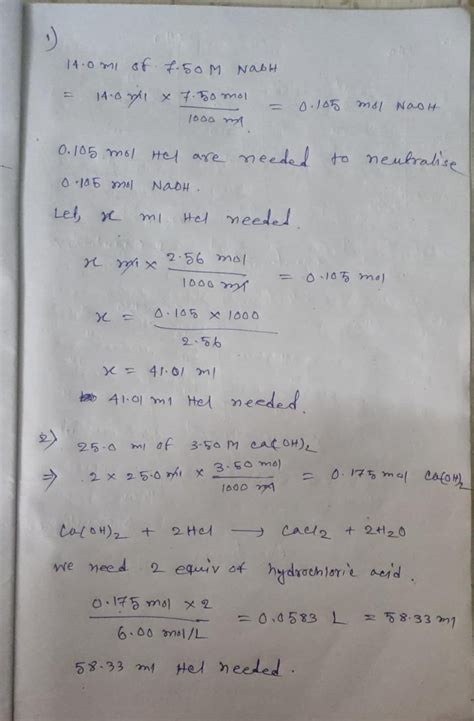 1)
14.0 ml of 7.50 M NaOH
= 14.0 ml × 7.50 mol / 1000 ml = 0.105 mol NaOH
0.105 mol Hcl are needed to neutralise
0.105 mol NaOH.
Let, x ml Hcl needed.
x ml × 2.56 mol / 1000 ml = 0.105 mol
x = 0.105 × 1000 / 2.56
x = 41.01 ml
41.01 ml Hcl needed.
2) 25.0 ml of 3.50 M Ca(OH)2
⇒ 2 × 25.0 ml × 3.50 mol / 1000 ml = 0.175 mol Ca(OH)2
Ca(OH)2 + 2Hcl → CaCl2 + 2H2O
we need 2 equiv of hydrochloric acid.
0.175 mol × 2 / 6.00 mol/L = 0.0583 L = 58.33 ml
58.33 ml Hcl needed.